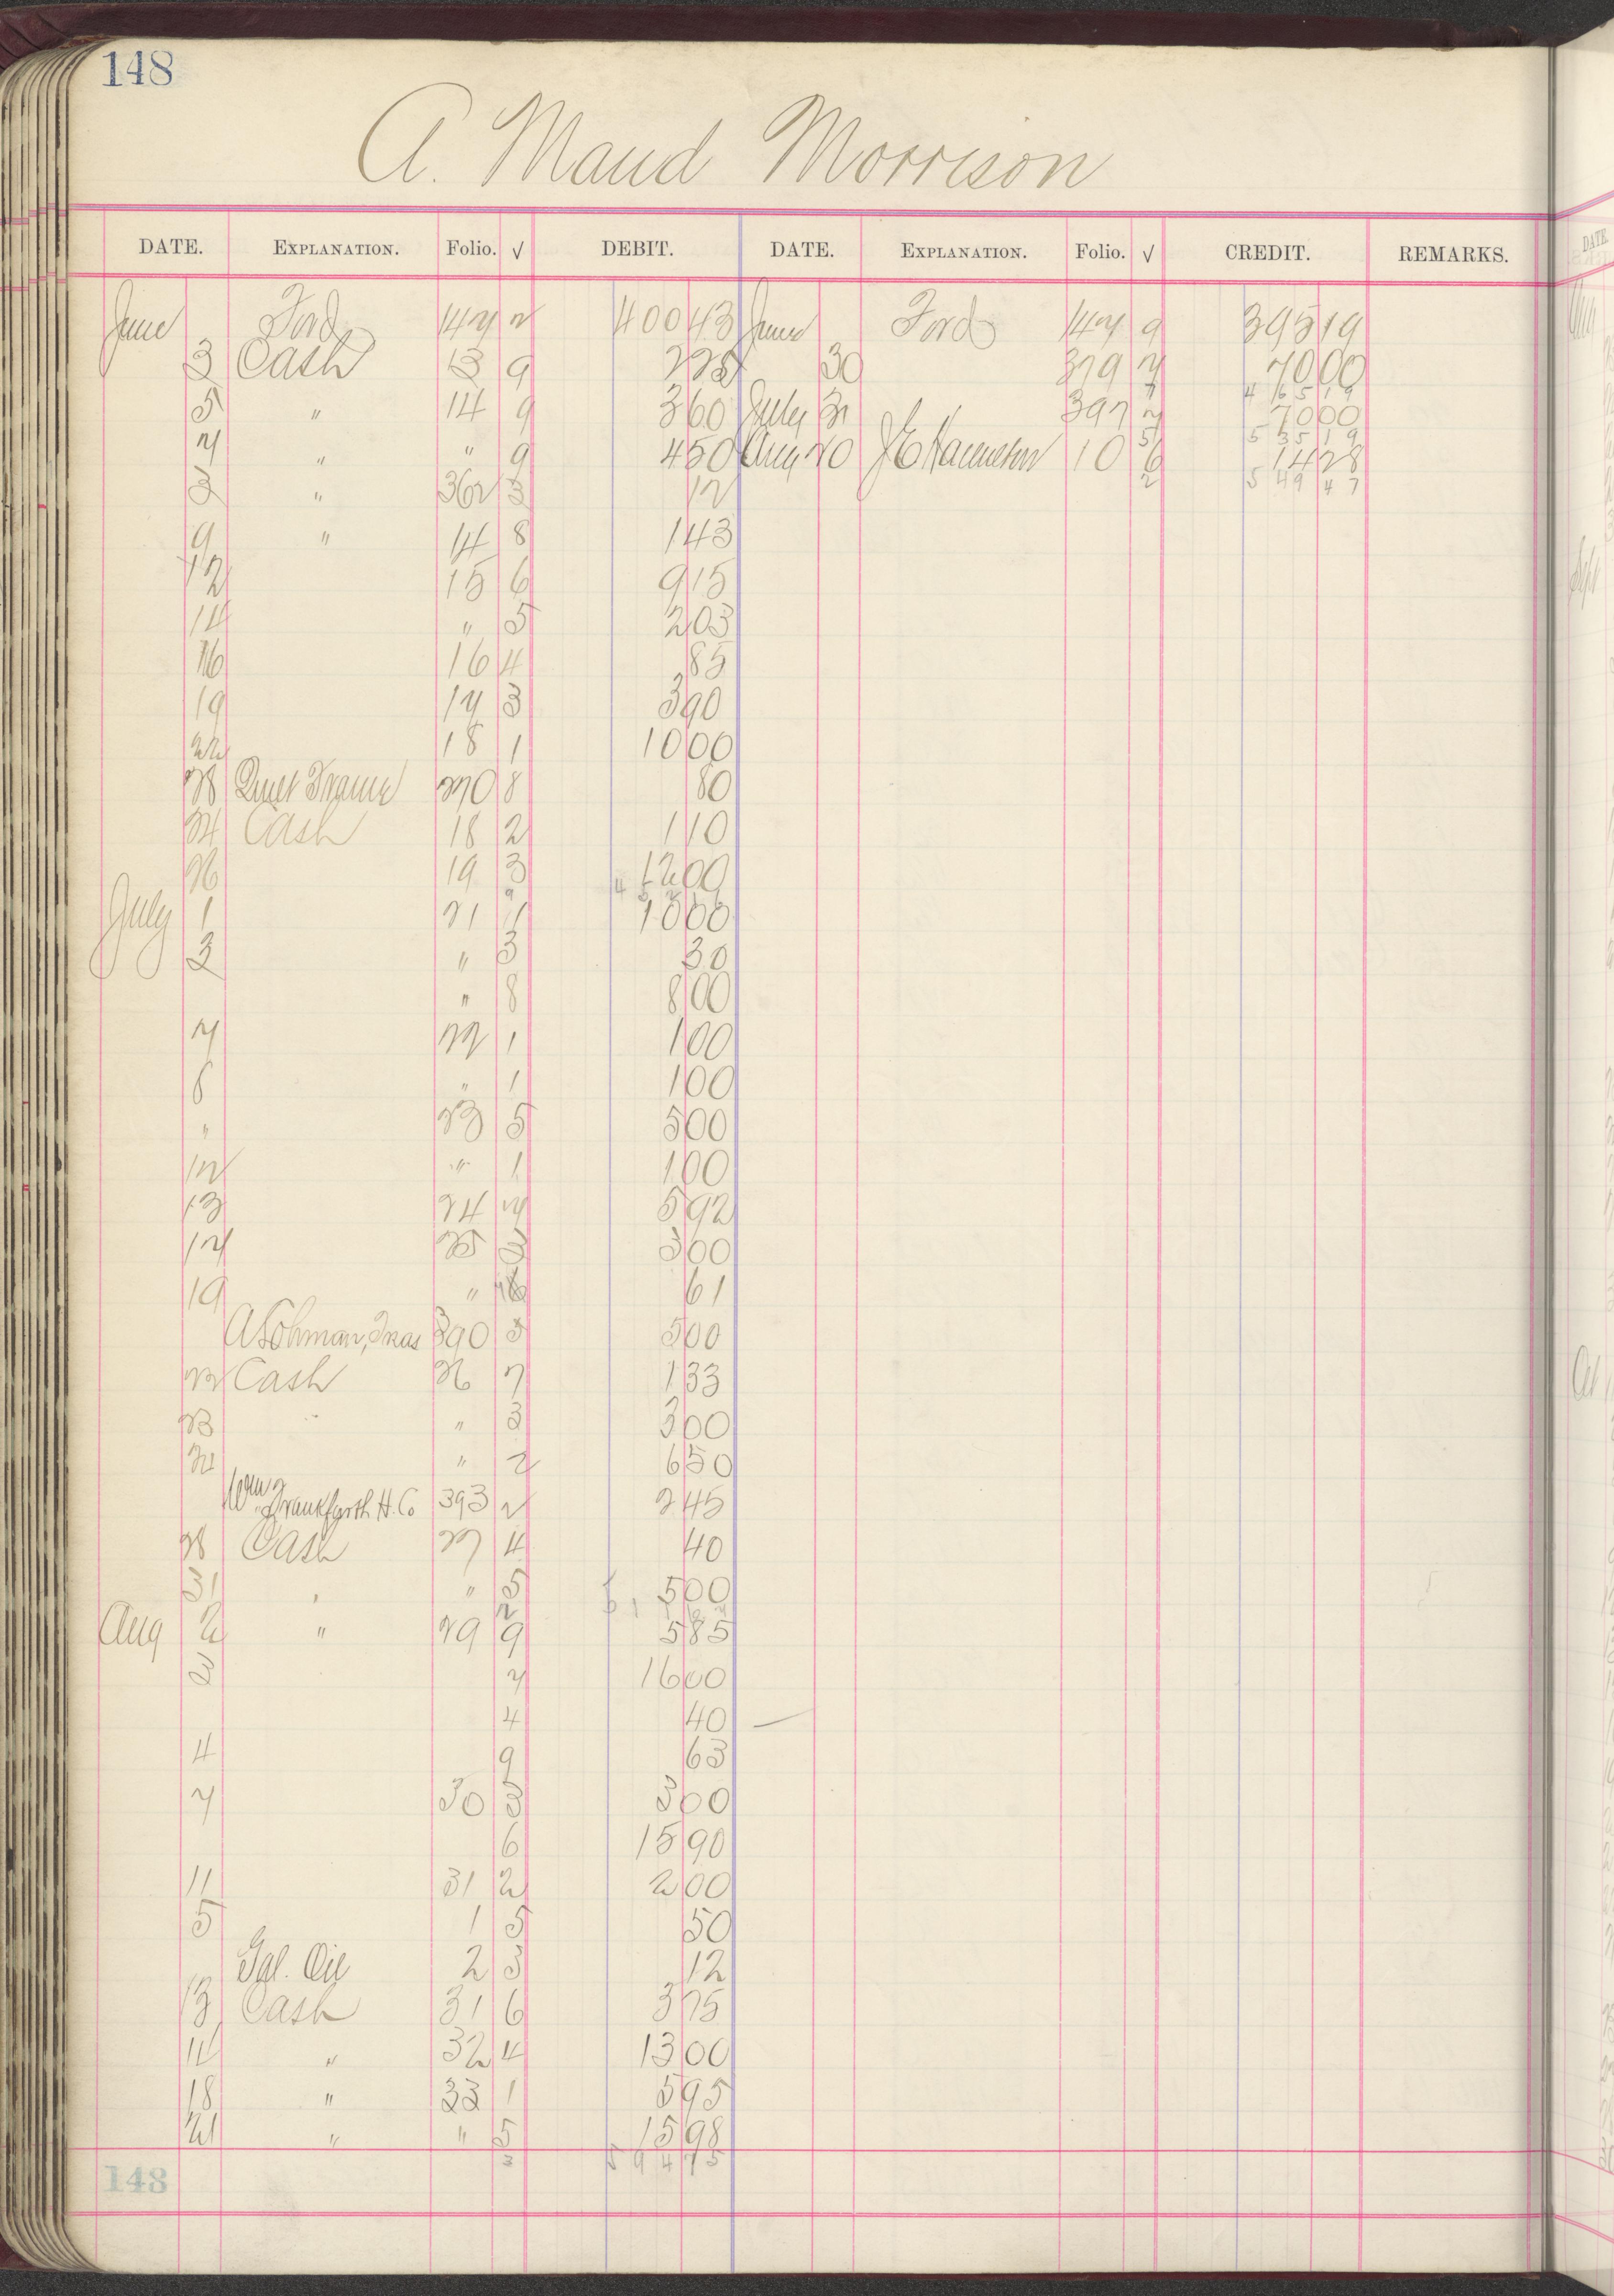 148
A. Maud Morrison
DATE. EXPLANATION. Folio. √ DEBIT. DATE. EXPLANATION. Folio. √ CREDIT. REMARKS.
June Ford 147 2 400 43 June Ford 147 9 395 19
3 Cash 13 9 2 25 30 379 7 70 00
4 65 19
5 " 14 9 3 60 July 31 397 7 70 00
5 35 19
7 " " 9 4 50 Aug 20 10 6 14 28
5 49 47
3 " 362 3 12
9 " 14 8 1 43
12 15 6 9 15
14 " 5 2 03
16 16 4 85
19 17 3 3 90
22 18 1 10 00
28 270 8 80
24 Cash 18 2 1 10
26 19 3 12 00
July 1 21 1 10 00
3 " 3 30
" 8 8 00
7 22 1 1 00
8 " 1 1 00
" 23 5 5 00
12 " 1 1 00
13 24 7 5 92
17 25 3 3 00
19 " 6 61
390 5 5 00
22 Cash 26 7 1 33
23 " 3 3 00
24 " 2 6 50
Frankfurth H. Co 393 2 2 45
28 Cash 27 4 40
31 " " 5 5 00
Aug 2 " 29 9 5 85
3 7 16 00
4 40
4 9 63
7 30 3 3 00
6 15 90
11 31 2 2 00
5 1 5 50
Gal. Oil 2 3 12
13 Cash 31 6 3 75
14 " 32 4 13 00
18 " 33 1 5 95
21 " " 5 15 98
5 94 75
148